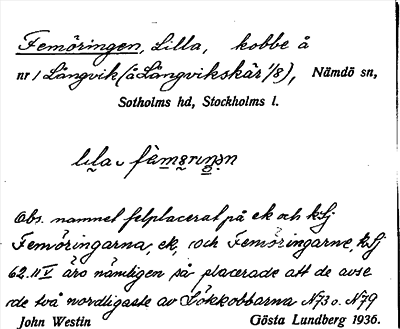 Femöringen, Lilla, kobbe å
nr 1 Långvik (å Långvikskär 1/8), Nämdö sn,
Sotholms hd, Stockholms l.
Obs. namnet felplacerat på ek och ksj
Femöringarna, ek, och Femöringarne, ksj
62.II V äro nämligen så placerade att de avse
de två nordligaste av Sökkobbarna N73 o. N79
John Westin Gösta Lundberg 1936.